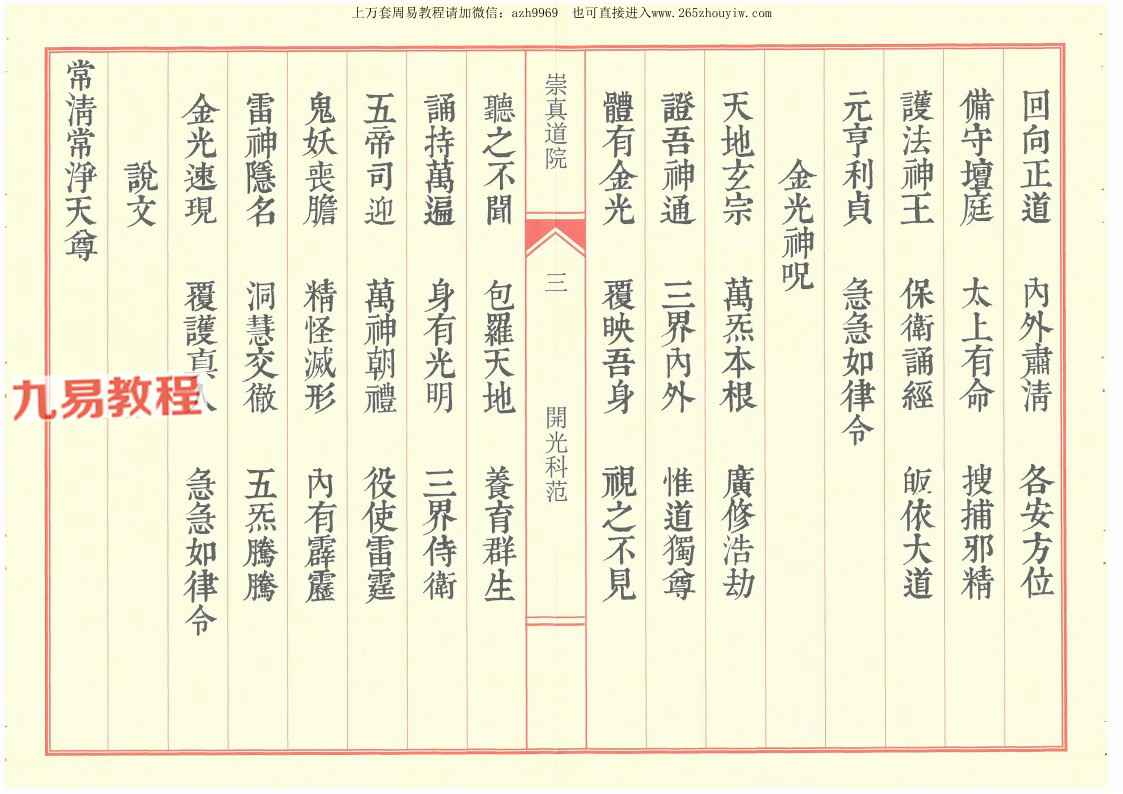 上万套周易教程请加微信：azh9969　也可直接进入www.265zhouyiw.com
回向正道　內外肅淸　各安方位
備守壇庭　太上有命　搜捕邪精
護法神王　保衛誦經　皈依大道
元亨利貞　急急如律令
金光神呪
天地玄宗　萬炁本根　廣修浩劫
證吾神通　三界內外　惟道獨尊
體有金光　覆映吾身　視之不見
崇真道院　三　開光科范
聽之不聞　包羅天地　養育群生
誦持萬遍　身有光明　三界侍衛
五帝司迎　萬神朝禮　役使雷霆
鬼妖喪膽　精怪滅形　內有霹靂
雷神隱名　洞慧交徹　五炁騰騰
金光速現　覆護真人　急急如律令
說文
常淸常淨天尊
九易教程